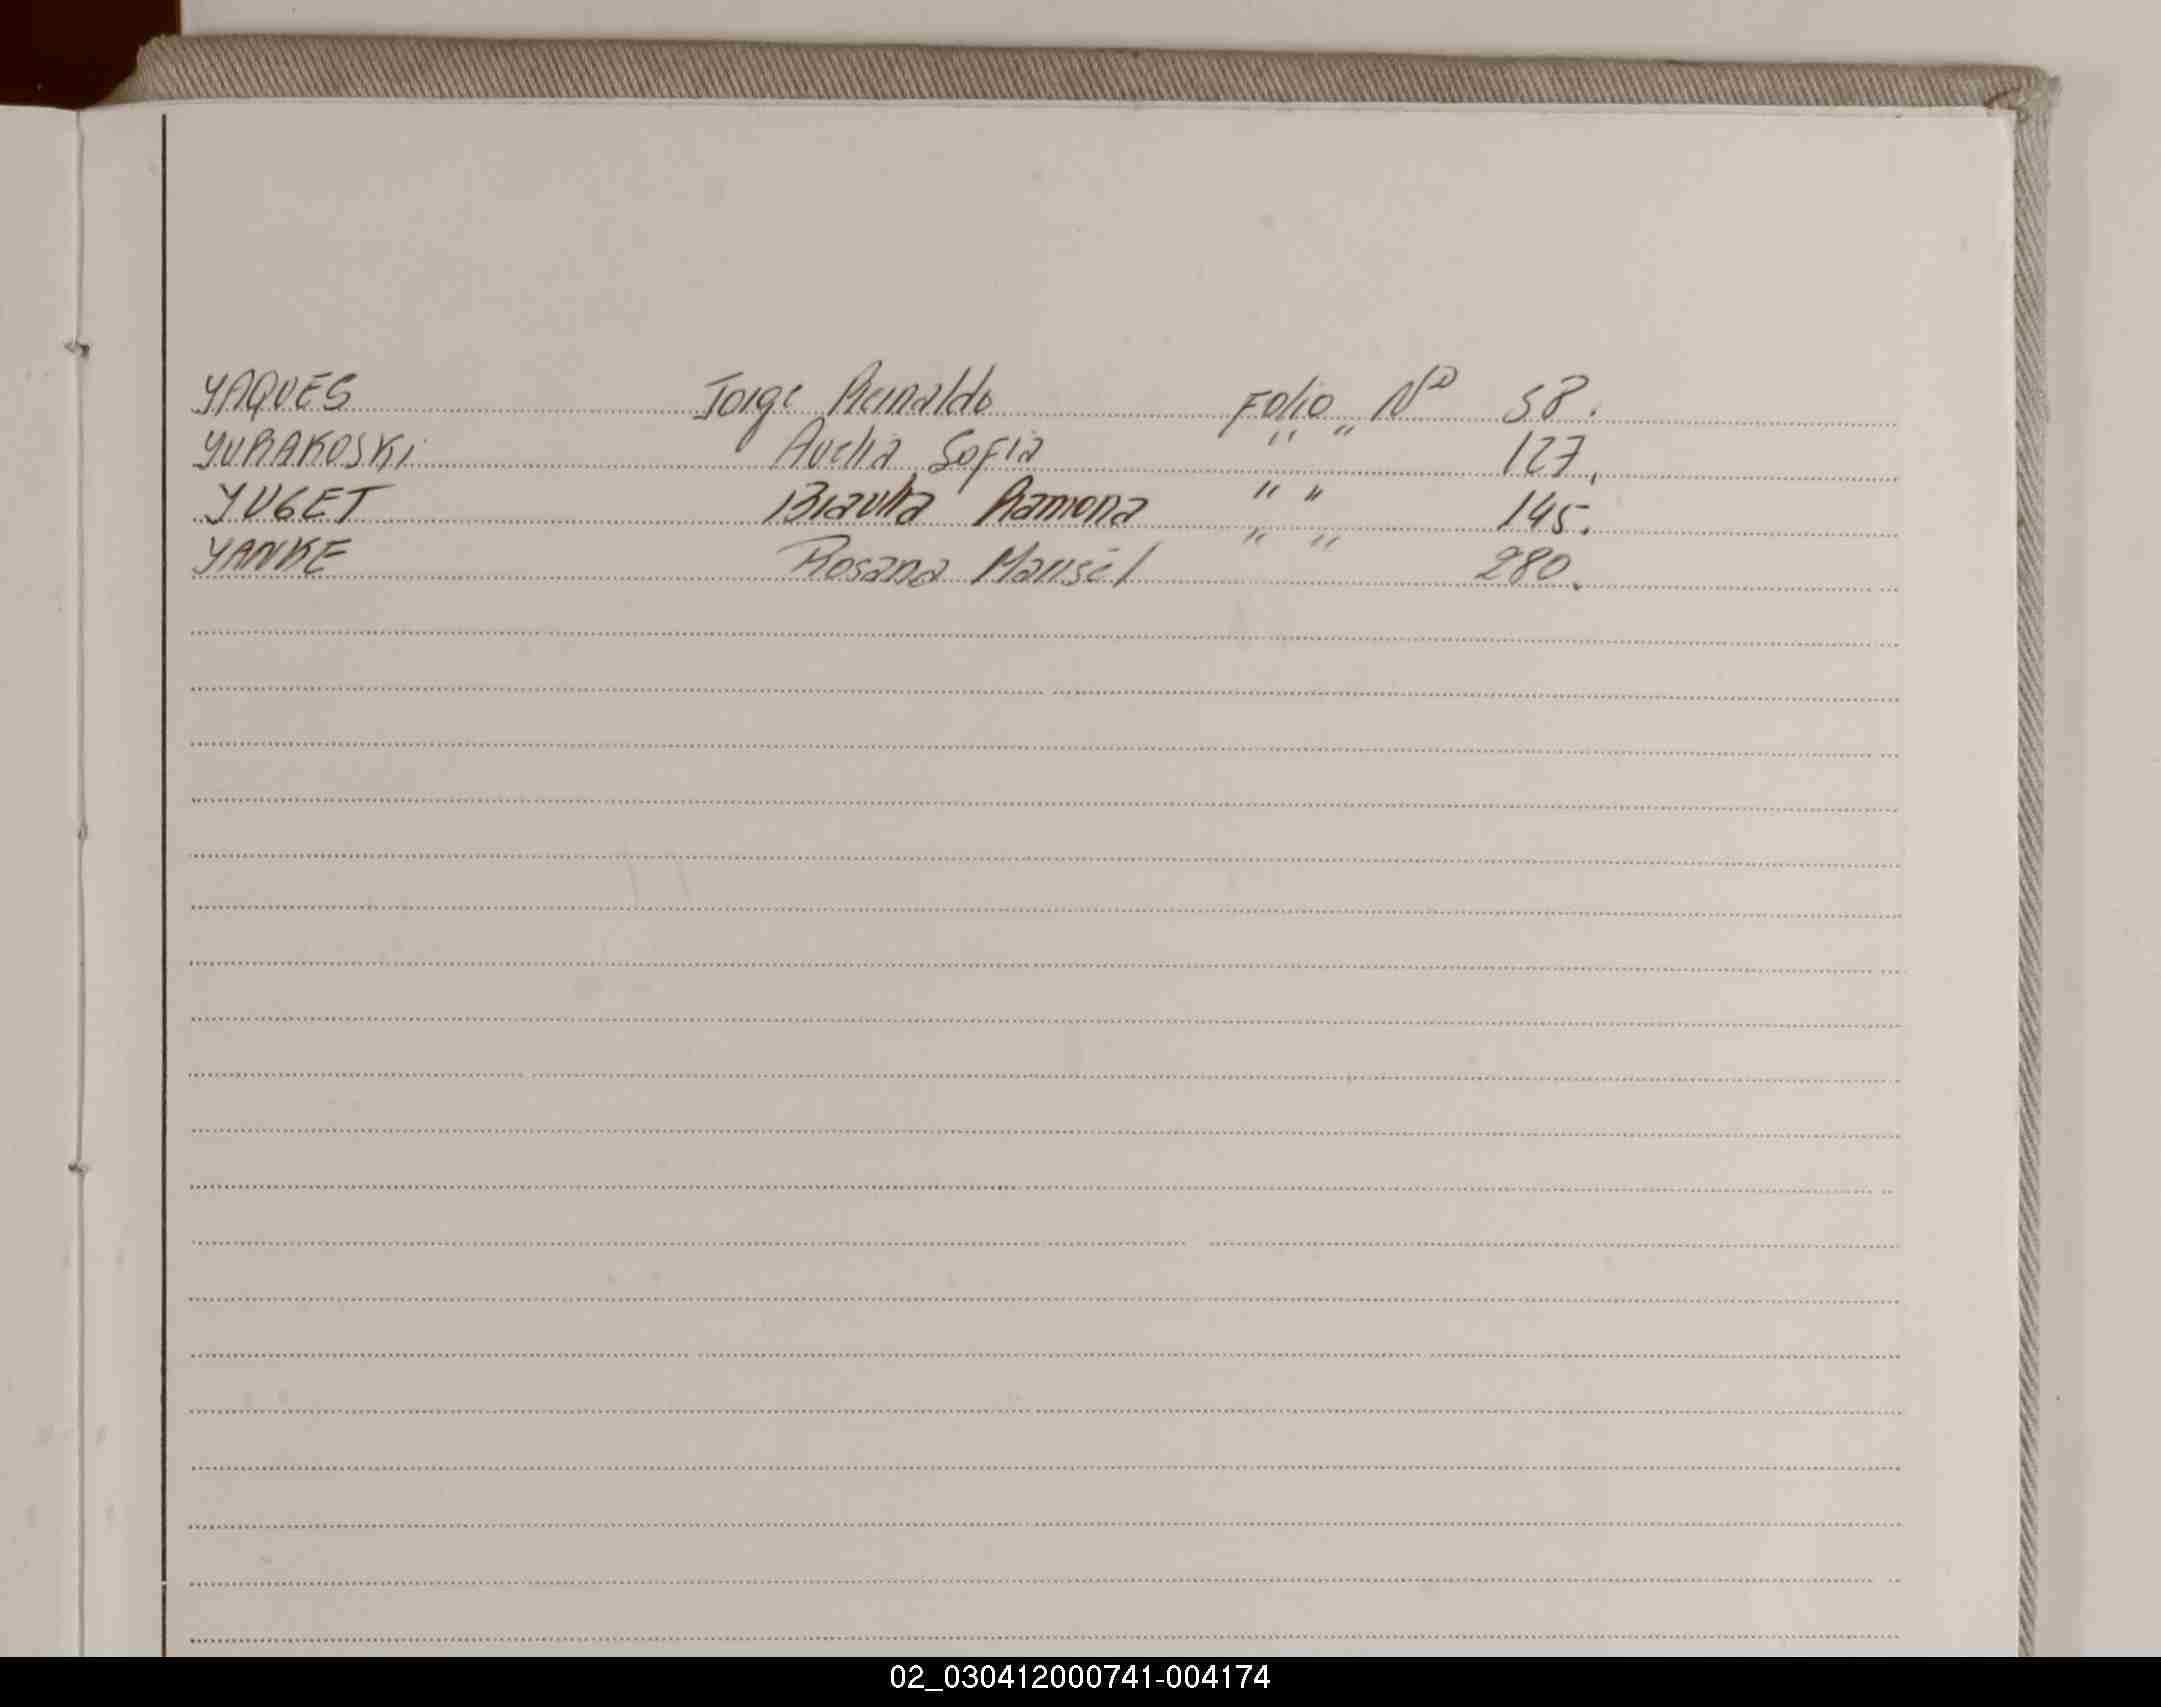 YAQUES Jorge Reinaldo Folio Nº 58.
YURAKOSKi Aucha Sofia " " 127.
YUGET Braulia Ramona " " 145.
YANKE Rosana Marisél " " 280.
02_030412000741-004174